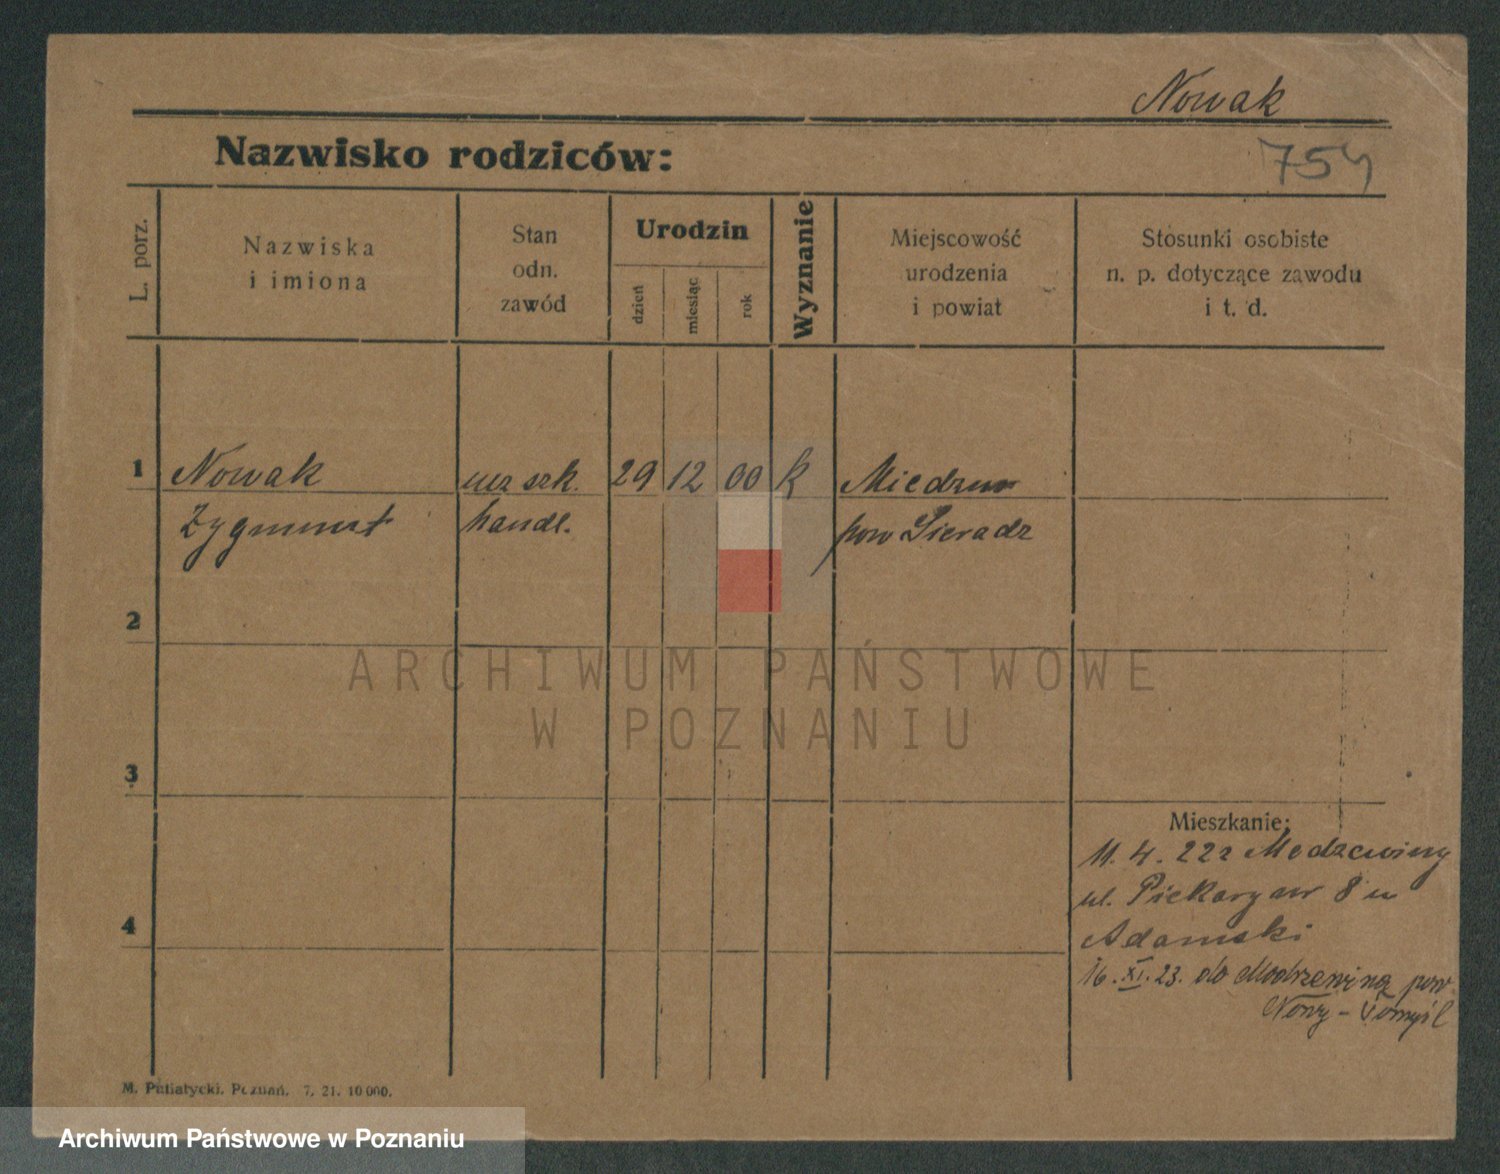 Nowak
Nazwisko rodziców:
754
L. porz.
Nazwiska
i imiona
Stan
odn.
zawód
Urodzin
dzień
miesiąc
rok
Wyznanie
Miejscowość
urodzenia
i powiat
Stosunki osobiste
n. p. dotyczące zawodu
i t. d.
1
Nowak
ucz szk.
29
12
00
k
Zygmunt
handl.
pow Sieradz
2
ARCHIWUM PAŃSTWOWE
W POZNANIU
3
Mieszkanie:
11. 4. 22 z
ul. Piekary nr 8 u
4
Adamski
16. XI. 23. do Modrzewina pow
Nowy-Tomyśl
M. Putiatycki. Poznań. 7. 21. 10 000.
Archiwum Państwowe w Poznaniu